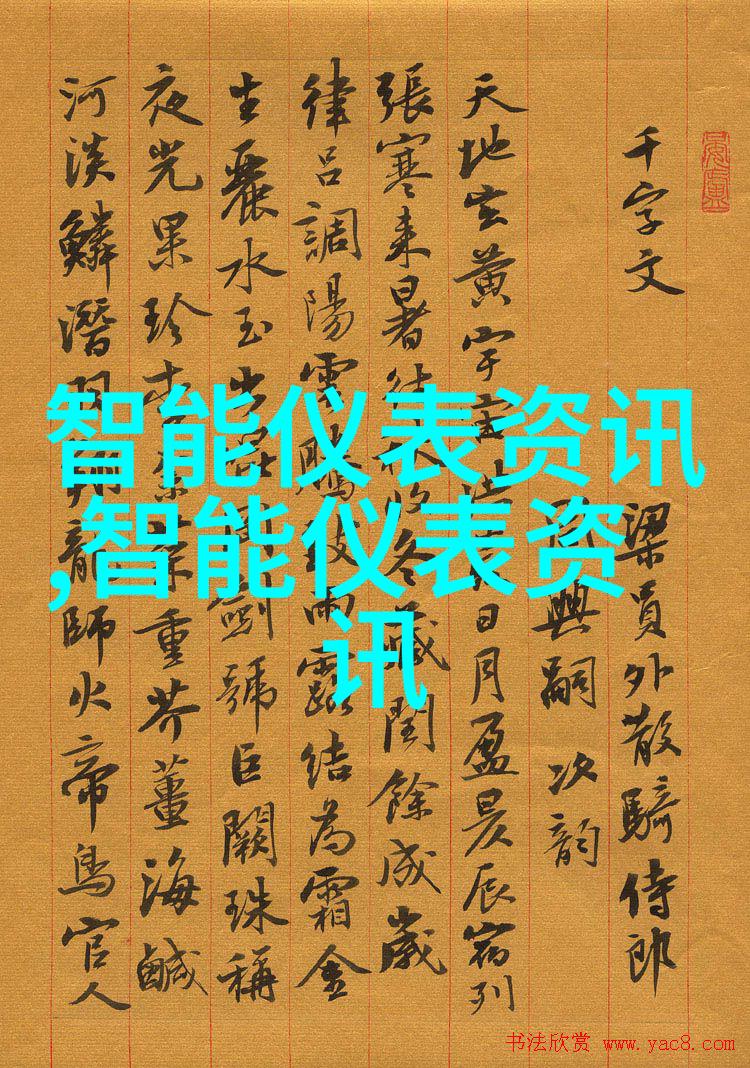 千字文 梁員外散騎侍郎
興嗣次韵
天地玄黄宇宙日月盈昃辰宿列
張寒来暑往秋收冬藏閏餘成歲
律吕調陽雲騰致雨露結為霜金
生麗水玉出崑岡劍號巨闕珠稱
夜光果珍李柰菜重芥薑海鹹
河淡鱗潛羽翔龍師火帝鳥官人
智能仪表资讯
,智能仪表资
讯
书法欣赏 www.yac8.com